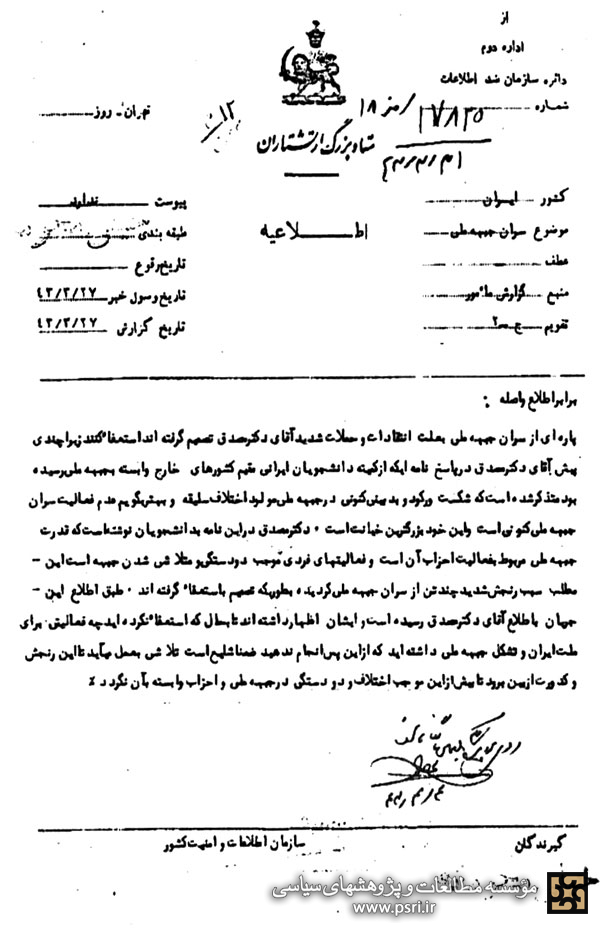 از
اداره دوم
دائره سازمان ضد اطلاعات
شماره
تهران - روز
ستاد بزرگ ارتشتاران
کشور ایران
پیوست ندارد
موضوع سران جبهه ملی
اطلاعیه
طبقه بندی
عطف
تاریخ وقوع
منبع گزارش مأمور
تاریخ وصول خبر ۴۳/۳/۲۷
تقویم ج-۲
تاریخ گزارش ۴۳/۳/۲۷
برابر اطلاع واصله :
پاره ای از سران جبهه ملی بعلت انتقادات و حملات شدید آقای دکتر مصدق تصمیم گرفته اند استعفا کنند زیرا چندی
پیش آقای دکتر مصدق در پاسخ نامه ایکه از کمیته دانشجویان ایرانی مقیم کشورهای خارج وابسته بجبهه ملی رسیده
بود متذکر شده است که شکست و رکود و بد بینی کنونی در جبهه ملی مولود اختلاف سلیقه و بهتر بگویم عدم فعالیت سران
جبهه ملی کنونی است و این خود بزرگترین خیانت است ۰ دکتر مصدق در این نامه بدانشجویان نوشته است که قدرت
جبهه ملی مربوط بفعالیت احزاب آن است و فعالیتهای فردی موجب دو دستگی و متلاشی شدن جبهه است این -
مطلب سبب رنجش شدید چند تن از سران جبهه ملی گردیده بطوریکه تصمیم باستعفا گرفته اند ۰ طبق اطلاع این -
جریان باطلاع آقای دکتر مصدق رسیده است و ایشان اظهار داشته اند تا بحال که استعفا نکرده اید چه فعالیتی برای
ملت ایران و تشکل جبهه ملی داشته اید که از این پس انجام ندهید ضمنا شایع است تلاشی بعمل میآید تا این رنجش
و کدورت از بین برود تا بیش از این موجب اختلاف و دو دستگی در جبهه ملی و احزاب وابسته بآن نگردد ٪
گیرندگان
سازمان اطلاعات و امنیت کشور
مؤسسه مطالعات و پژوهشهای سیاسی
www.psri.ir